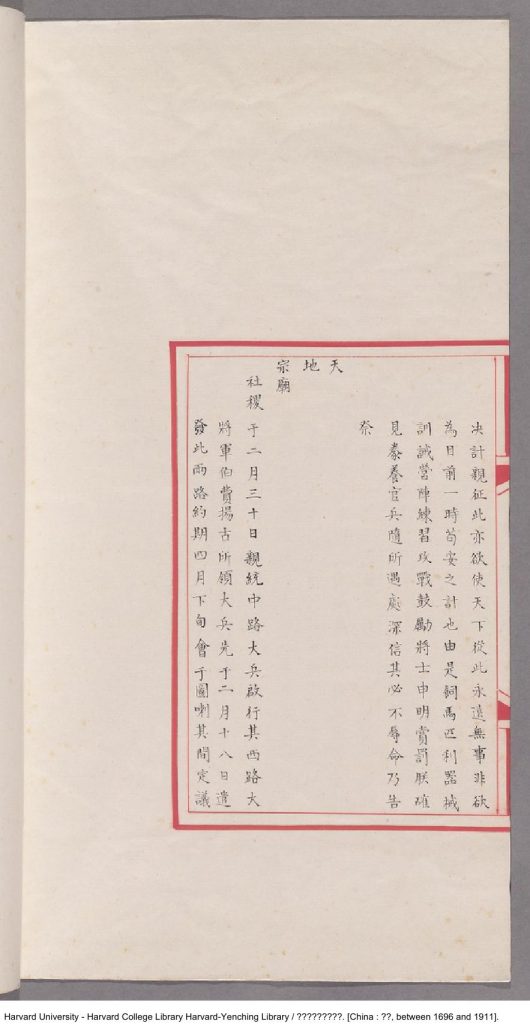 决計親征此亦欲使天下從此永遠無事非欲
為目前一時苟安之計也由是飼馬匹利器械
訓誡營陣練習攻戰鼓勵將士申明賞罰朕確
見豢養官兵隨所遇處深信其必不辱命乃告
祭
天
地
宗廟
社稷于二月三十日親統中路大兵啟行其西路大
將軍伯費揚古所領大兵先于二月十八日遣
發此兩路約期四月下旬會于圖喇其間定議
Harvard University - Harvard College Library Harvard-Yenching Library / ?????????. [China : ??, between 1696 and 1911].